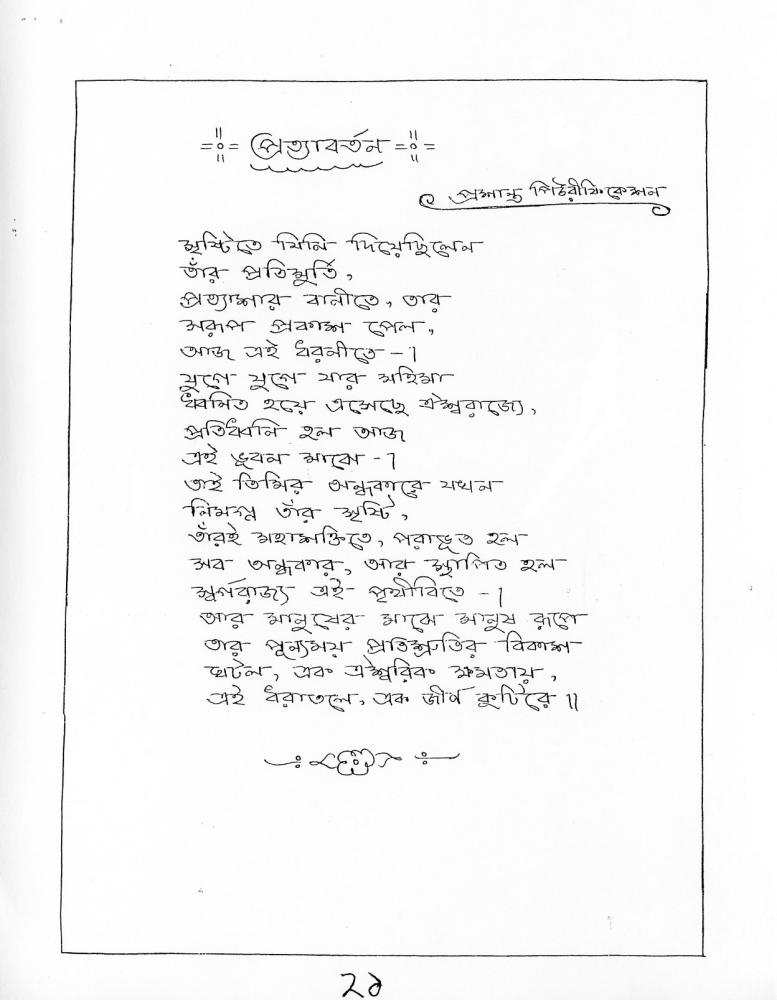 প্রত্যাবর্তন
প্রশান্ত পিউরীফিকেশন
সৃষ্টিতে যিনি দিয়েছিলেন
তাঁর প্রতিমুর্তি,
প্রত্যাশার বানীতে, তার
সরূপ প্রকাশ পেল,
আজ এই ধরনীতে -।
যুগে যুগে যার মহিমা
ধ্বনিত হয়ে এসেছে ঐশ্বরাজ্যে,
প্রতিধ্বনি হল আজ
এই ভূবন মাঝে -।
তাই তিমির অন্ধকারে যখন
নিমগ্ন তাঁর সৃষ্টি,
তাঁরই মহাশক্তিতে, পরাভূত হল
সব অন্ধকার, আর স্থাপিত হল
স্বর্গরাজ্য এই পৃথীবিতে -।
আর মানুষের মাঝে মানুষ রূপে
তার পূন্যময় প্রতিশ্রুতির বিকাশ
ঘটল, এক ঐশ্বরিক ক্ষমতায়,
এই ধরাতলে, এক জীর্ণ কুটিরে ॥
২৯